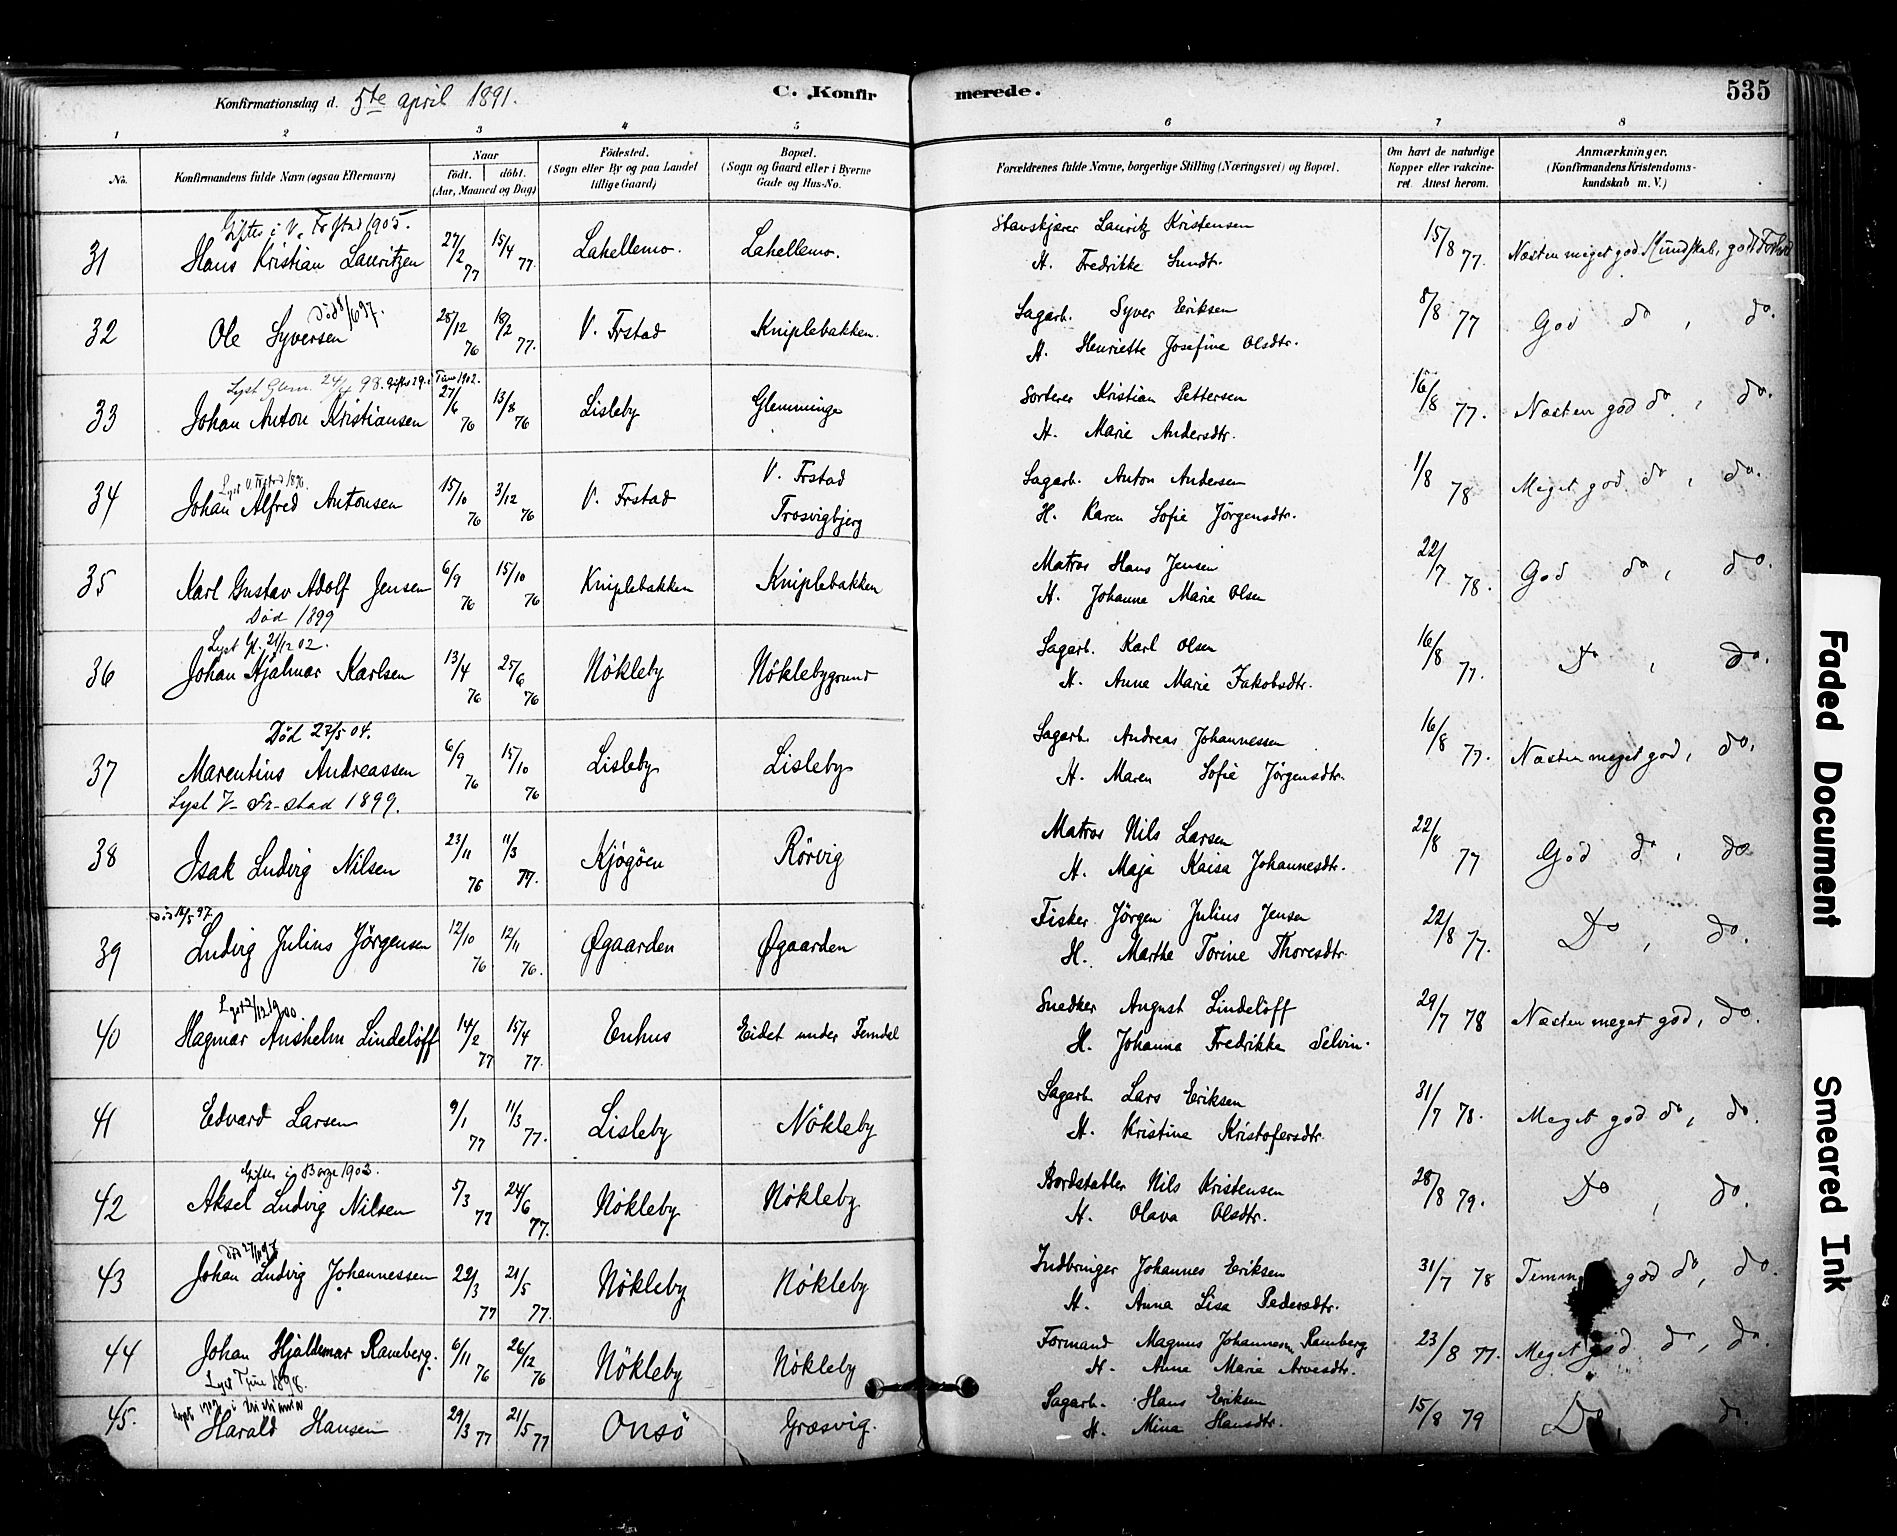 Konfirmationsdag d. 5te april 1891. C. Konfir merede. 535
1 2 3 4 5 6 7 8
No. Konfirmandens fulde Navn (ogsaa Efternavn) Naar födt. döbt. (Aar, Maaned og Dag) Födested. (Sogn eller By og paa Landet tillige Gaard) Bopæl. (Sogn og Gaard eller i Byerne Gade og Hus-No. Forældrenes fulde Navne, borgerlige Stilling (Næringsvei) og Bopæl. Om havt de naturlige Kopper eller vakcineret. Attest herom. Anmærkninger. (Konfirmandens Kristendomskundskab m. V.)
Giftes i V. Frstad 1905.
31 Hans Kristian Lauritzen 27/2 77 15/4 77. Lahellemo. Lahellemo. Lauritz Kristensen 15/8 77. Næsten meget god Kundskab, god Forhold
H. Fredrikke Lundt.
Död 8/6 97.
32 Ole Syversen 28/12 76 18/2 77. V. Frstad Kniplebakken. Sagarb. Syver Eriksen 8/8 77 God do , do.
H. Henriette Josefine Olsdtr.
Lyst Glem. 24/4 98. Giftes 29. i Tune 1902.
33 Johan Anton Kristiansen 27/6 76 13/8 76 Lisleby Glemminge Sorterer Kristian Pettersen 16/8 77. Næsten god do , do.
H. Marie Andersdtr.
Lyst V. Frstad 1896.
34 Johan Alfred Antonsen 15/10 76 3/12 76 V. Frstad V. Frstad Trosvigbjerg Sagarb. Anton Andersen 1/8 78 Meget god do , do.
H. Karen Sofie Jörgensdtr.
35 Karl Gustav Adolf Jensen 6/9 76 15/10 76 Kniplebakken Kniplebakken Matros Hans Jensen 22/7 78. God do , do.
Död 1899 H. Johanne Marie Olsen
Lyst Gl. 21/12 02.
36 Johan Hjalmar Karlsen 13/4 76 25/6 76 Nökleby Nöklebygrund Sagarb. Karl Olsen 16/8 77. Do , do.
H. Anne Marie Jakobsdtr.
Död 27/5 04.
37 Marentius Andreassen 6/9 76 15/10 76 Lisleby Lisleby Sagarb. Andreas Johannessen 16/8 77. Næsten meget god, do.
Lyst V- Fr-stad 1899. H. Maren Sofie Jörgensdtr.
38 Isak Ludvig Nilsen 23/11 76 11/3 77. Kjögöen Rörvig Matros Nils Larsen 22/8 77 God do , do
H. Maja Kaisa Johannesdtr.
39 Ludvig Julius Jörgensen 12/10 76 12/11 76. Øgaarden Øgaarden Fisker Jörgen Julius Jensen 22/8 77. Do , do.
H. Marthe Torine Thoresdtr.
Lyst 2/12 1900.
40 Hagmar Anshelm Lindelöff 14/2 77 15/4 77. Enhus Eidet under Femdal Snedker August Lindelöff 29/7 78 Næsten meget god, do.
H. Johanna Fredrikke Selvin.
41 Edvard Larsen 9/1 77 11/3 77. Lisleby Nökleby Sagarb. Lars Eriksen 31/7 78. Meget god do, do.
H. Kristine Kristofersdtr.
Giftes i Borge 1903.
42 Aksel Ludvig Nilsen 5/3 77 24/6 77. Nökleby Nökleby Bordstabler Nils Kristensen 28/8 79. Do , do.
H. Olava Olsdtr.
43 Johan Ludvig Johannessen 22/3 77 21/5 77. Nökleby Nökleby Indbringer Johannes Eriksen 31/7 78 god do, do.
H. Anna Lisa Pedersdtr.
44 Johan Hjaldemar Ramberg. 6/11 76 26/12 76 Nökleby Nökleby Formand Magnus Johannesen Ramberg 23/8 77. Meget god do, do.
Lyst Tune 1898. H. Anne Marie Arvesdtr.
45. Harald Hansen 29/3 77 21/5 77 Onsö Græsvig. Sagarb. Hans Eriksen 15/8 79 Do , do.
H. Mina Hansdtr.
Faded Document
Smeared Ink